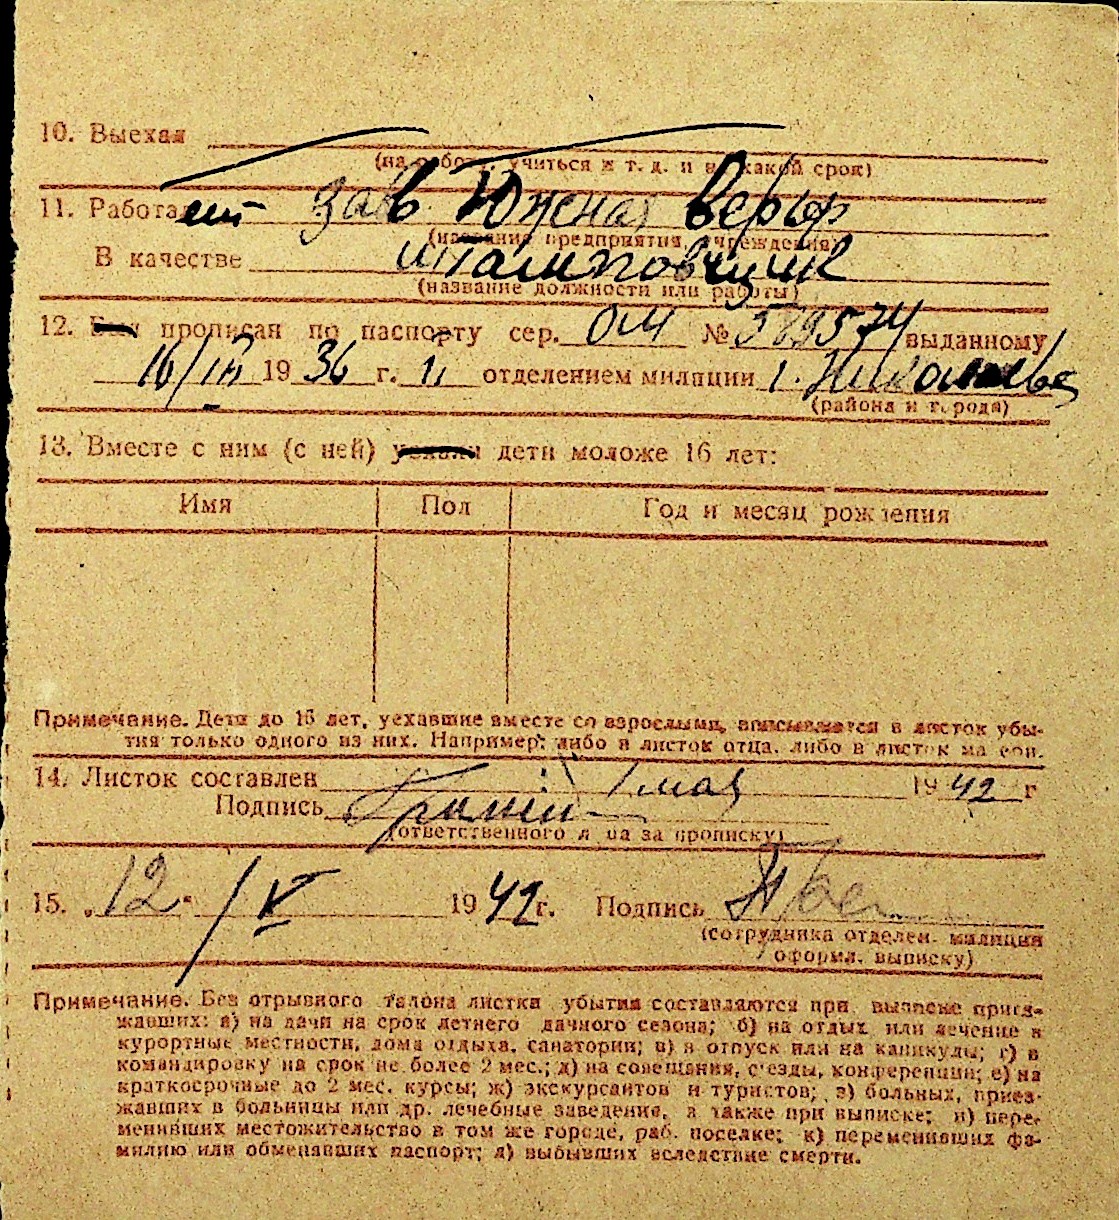 10. Выехал
(на работу, учиться и т. д. и на какой срок)
11. Работает зав. Южная Верфь
(название предприятия, учреждения)
В качестве штамповщик
(название должности или работы)
12. Был прописан по паспорту сер. ОМ № 589574 выданному
16/III 1936 г. 1, отделением милиции г. Николаева
(района и города)
13. Вместе с ним (с ней) уехали дети моложе 16 лет:
Имя Пол Год и месяц рождения
Примечание. Дети до 16 лет, уехавшие вместе со взрослыми, вписываются в листок убы-
тия только одного из них. Например: либо в листок отца, либо в листок матери.
14. Листок составлен 1 мая 1942 г
Подпись
(ответственного лица за прописку)
15. „12" / V 1942 г. Подпись
(сотрудника отделен. милиции
оформл. выписку)
Примечание. Без отрывного талона листки убытия составляются при выписке приез-
жавших: а) на дачи на срок летнего дачного сезона; б) на отдых или лечение в
курортные местности, дома отдыха, санатории; в) в отпуск или на каникулы; г) в
командировку на срок не более 2 мес.; д) на совещания, съезды, конференции; е) на
краткосрочные до 2 мес. курсы; ж) экскурсантов и туристов; з) больных, приез-
жавших в больницы или др. лечебные заведения, а также при выписке; и) пере-
менивших местожительство в том же городе, раб. поселке; к) переменивших фа-
милию или обменявших паспорт; л) выбывших вследствие смерти.